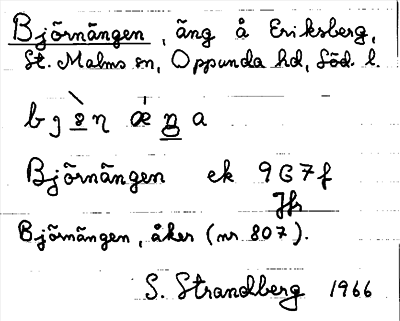 Björnängen, äng å Eriksberg,
St. Malms sn, Oppunda hd, Söd. l.
Björnängen ek 9G7f
Jfr
Björnängen, åker (nr 807).
S. Strandberg 1966